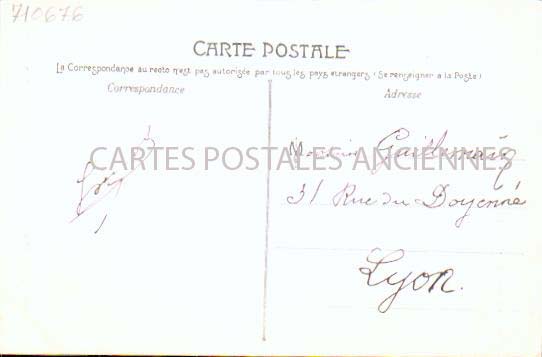 710676
CARTE POSTALE
La Correspondance au recto n'est pas autorisée par tous les pays étrangers (Se renseigner à la Poste)
Correspondance
Adresse
CARTES POSTALES ANCIENNES
Monsieur
31 Rue du Doyenné
Lyon.